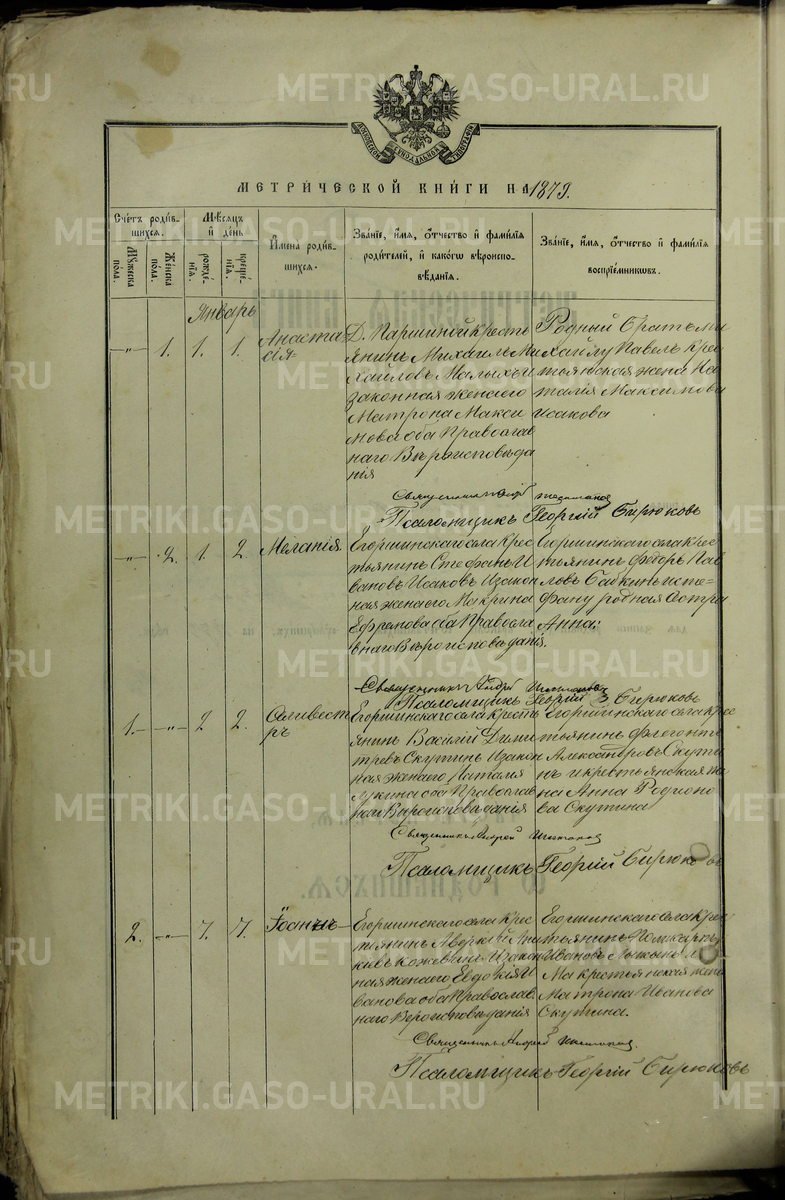 METRIKI.GASO-URAL.RU
МЕТРИ́ЧЕСКОЙ КНИ́ГИ НА 1879.
Сче́тъ роди́в-
шихся.
Му́жеска
пола.
Же́нска
пола.
Мѣ́сяцъ
и́ де́нь
рожде́-
нїѧ.
креще́-
нїѧ.
И҆мена роди́в-
шихся.
Зва́нїе, и҆́мя, ѻ҆́тчество и҆ фами́лїя
роди́телей, и҆ како́гѡ вѣроиспо-
вѣ́данїя.
Зва́нїе, и҆́мя, ѻ҆́тчество и҆ фами́лїя
воспрїе́мниковъ.
Январь
—„— 1. 1. 1.
Анаста
сія
Д. Паршиной кресть
янинъ Михаилъ Ми
хайловъ Малыхъ и
законная жена его
Матрона Макси
мова оба Православ
наго Вѣроисповѣда
нія
Родный братъ Ми
хаилу Павелъ крес
тьянская жена На
талія Максимова
Исакова
Священникъ Андрей
Псаломщикъ Георгій Бирюковъ
—„— 2. 1. 2.
Меланія
Егоршинскаго села крес
тьянинъ Стефанъ И
вановъ Исаковъ и закон
ная жена его Макрина
Ефремова оба Правосла
внаго Вѣроисповѣданія.
Егоршинскаго села крес
тьянинъ Федоръ Пав
ловъ и Сте=
фану родная сестра
Анна:
Священникъ Андрей
Псаломщикъ Георгій Бирюковъ
1. —„— 2 2.
Силивест
ръ
Егоршинскаго села кресть
янинъ Василій Дими
тревъ Скутинъ и закон
ная жена его Наталія
Лукина оба Православ
наго Вѣроисповѣданія
Егоршинскаго села крес
тьянинъ Флегонтъ
Александровъ Скути
нъ и крестьянская же
на Анна Родионо
ва Скутина
Священникъ Андрей
Псаломщикъ Георгій Бирюковъ
2. —„— 7. 7.
Іоаннъ
Егоршинскаго села крес
тьянинъ Аверкій Ани
кіевъ Кожевинъ и закон
ная жена его Евдокія И
ванова оба Православ
наго Вѣроисповѣданія
Егоршинскаго села крес
тьянинъ Поликарпъ
Ивановъ
крестьянская жена
Матрона Иванова
Скутина.
Священникъ Андрей
Псаломщикъ Георгій Бирюковъ